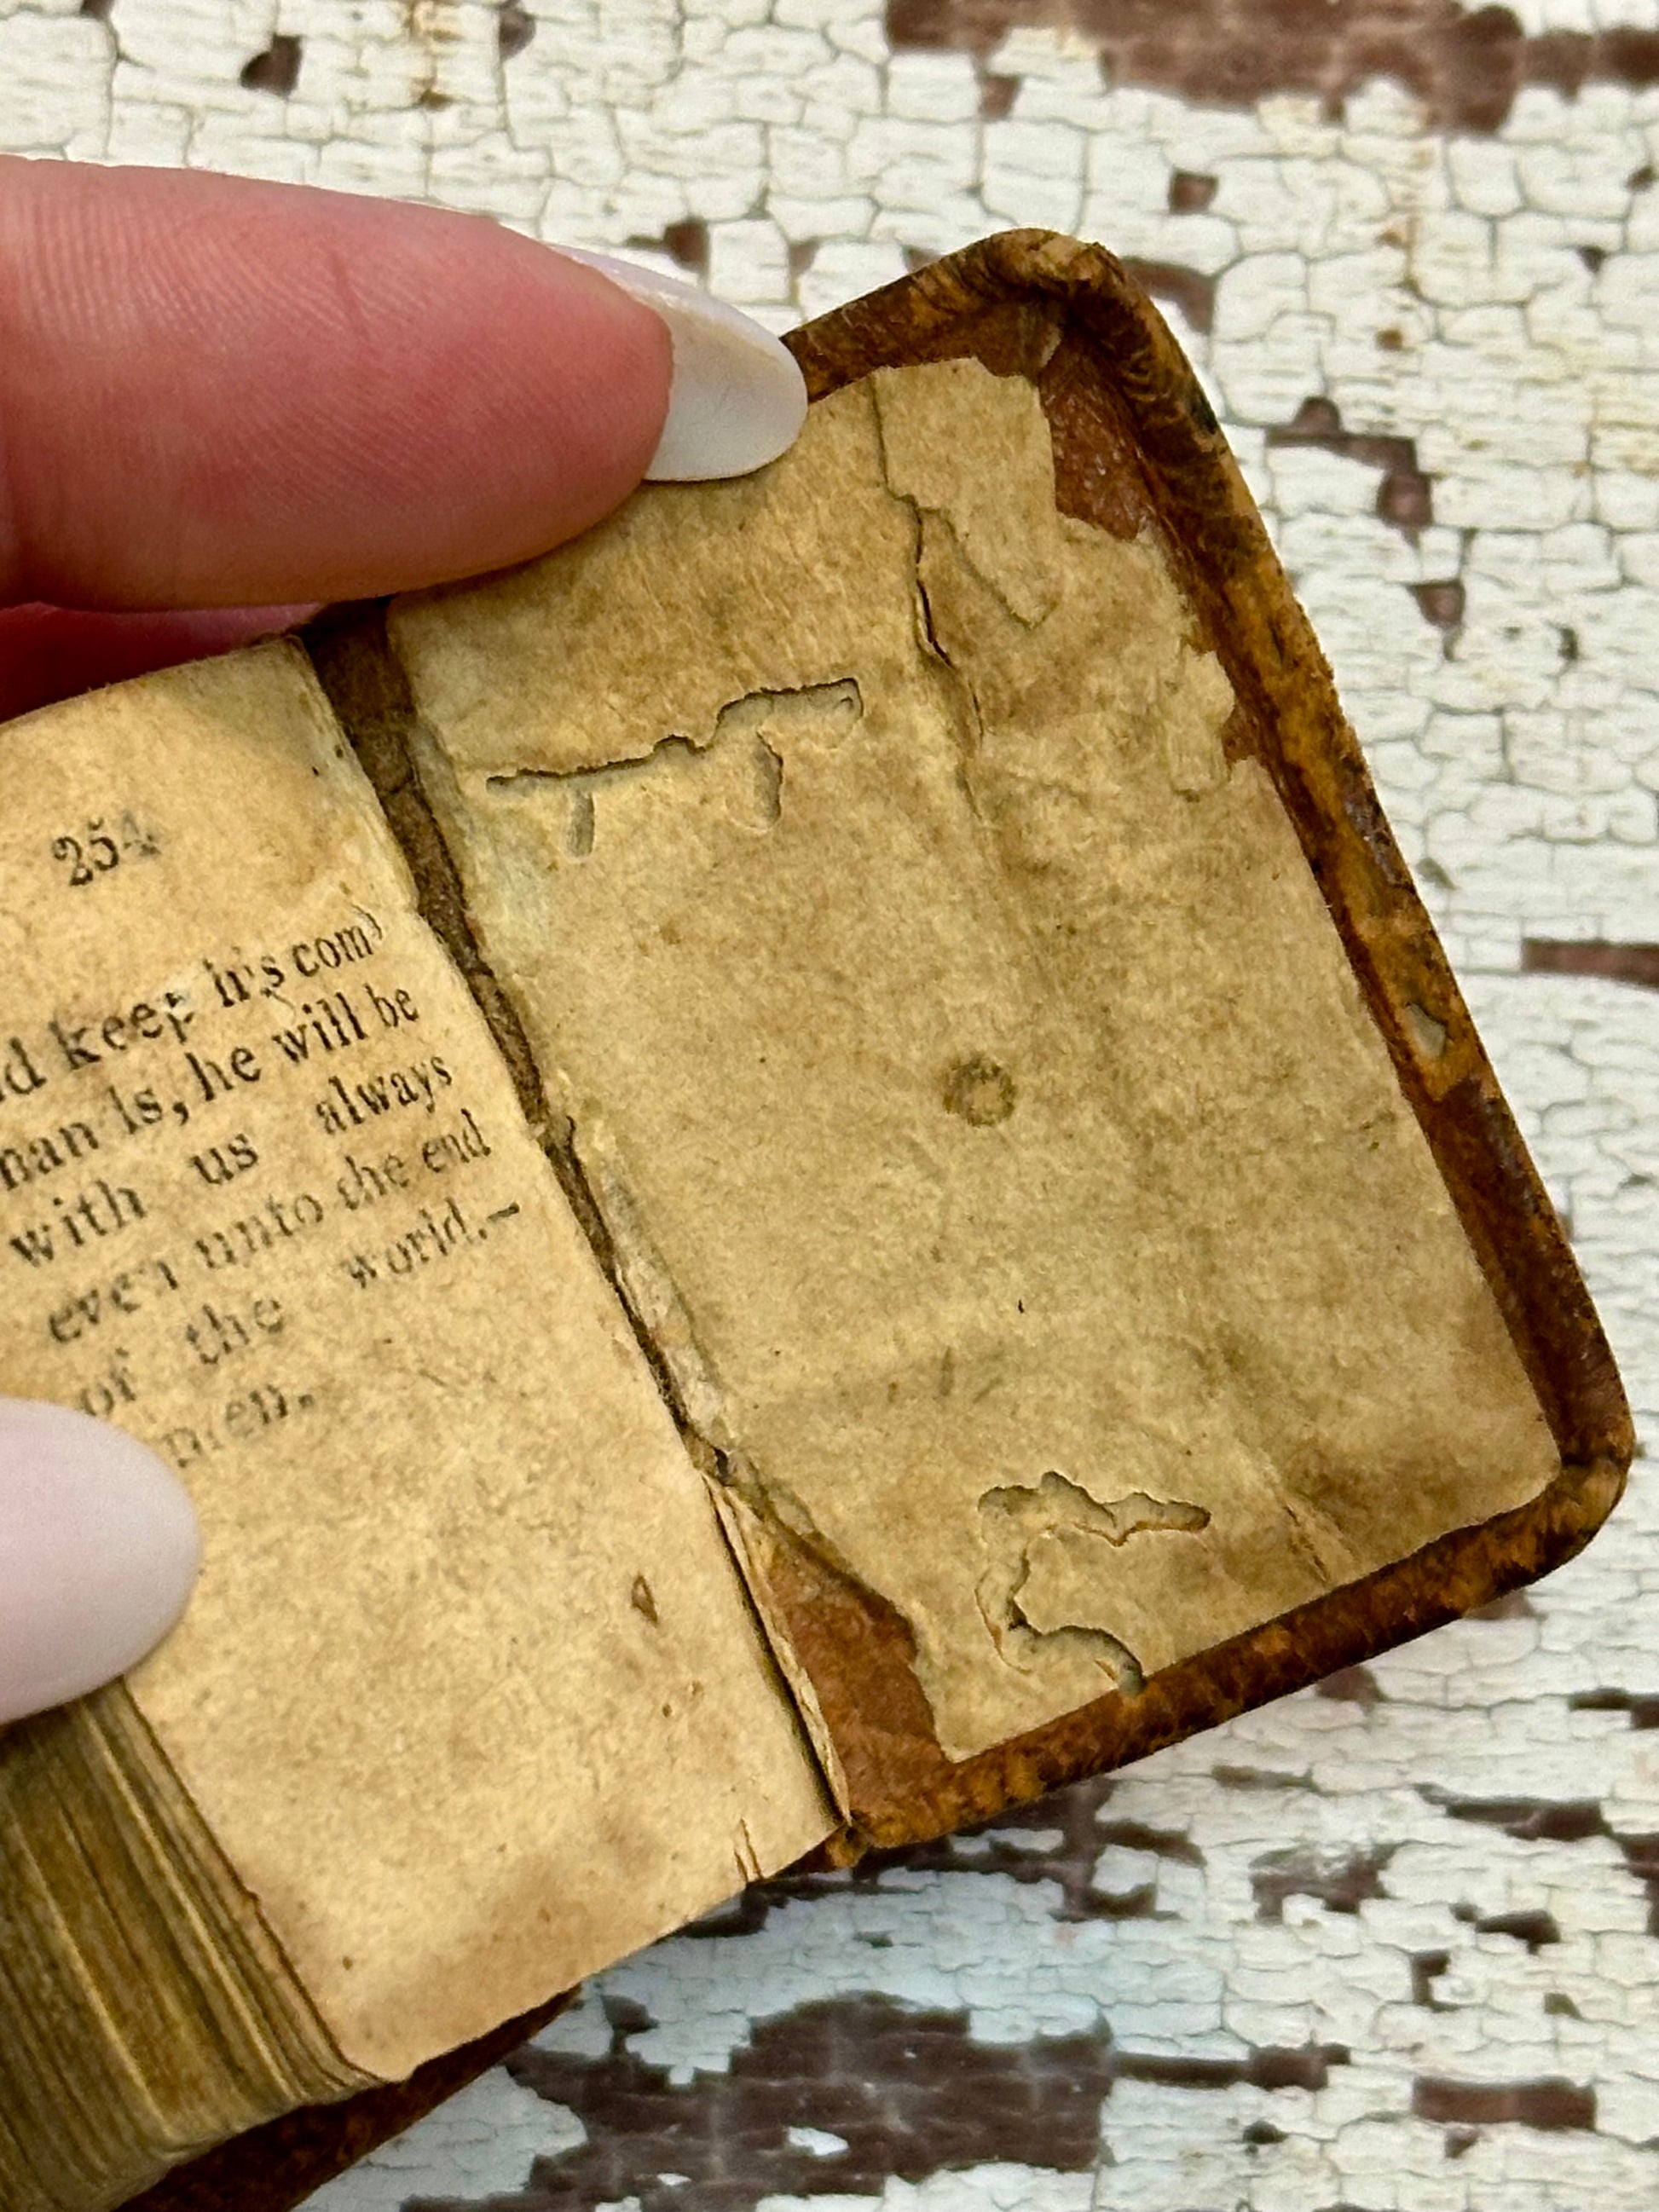 254
d keep his com
nan ls, he will be
with us always
even unto the end
of the world.-
men.